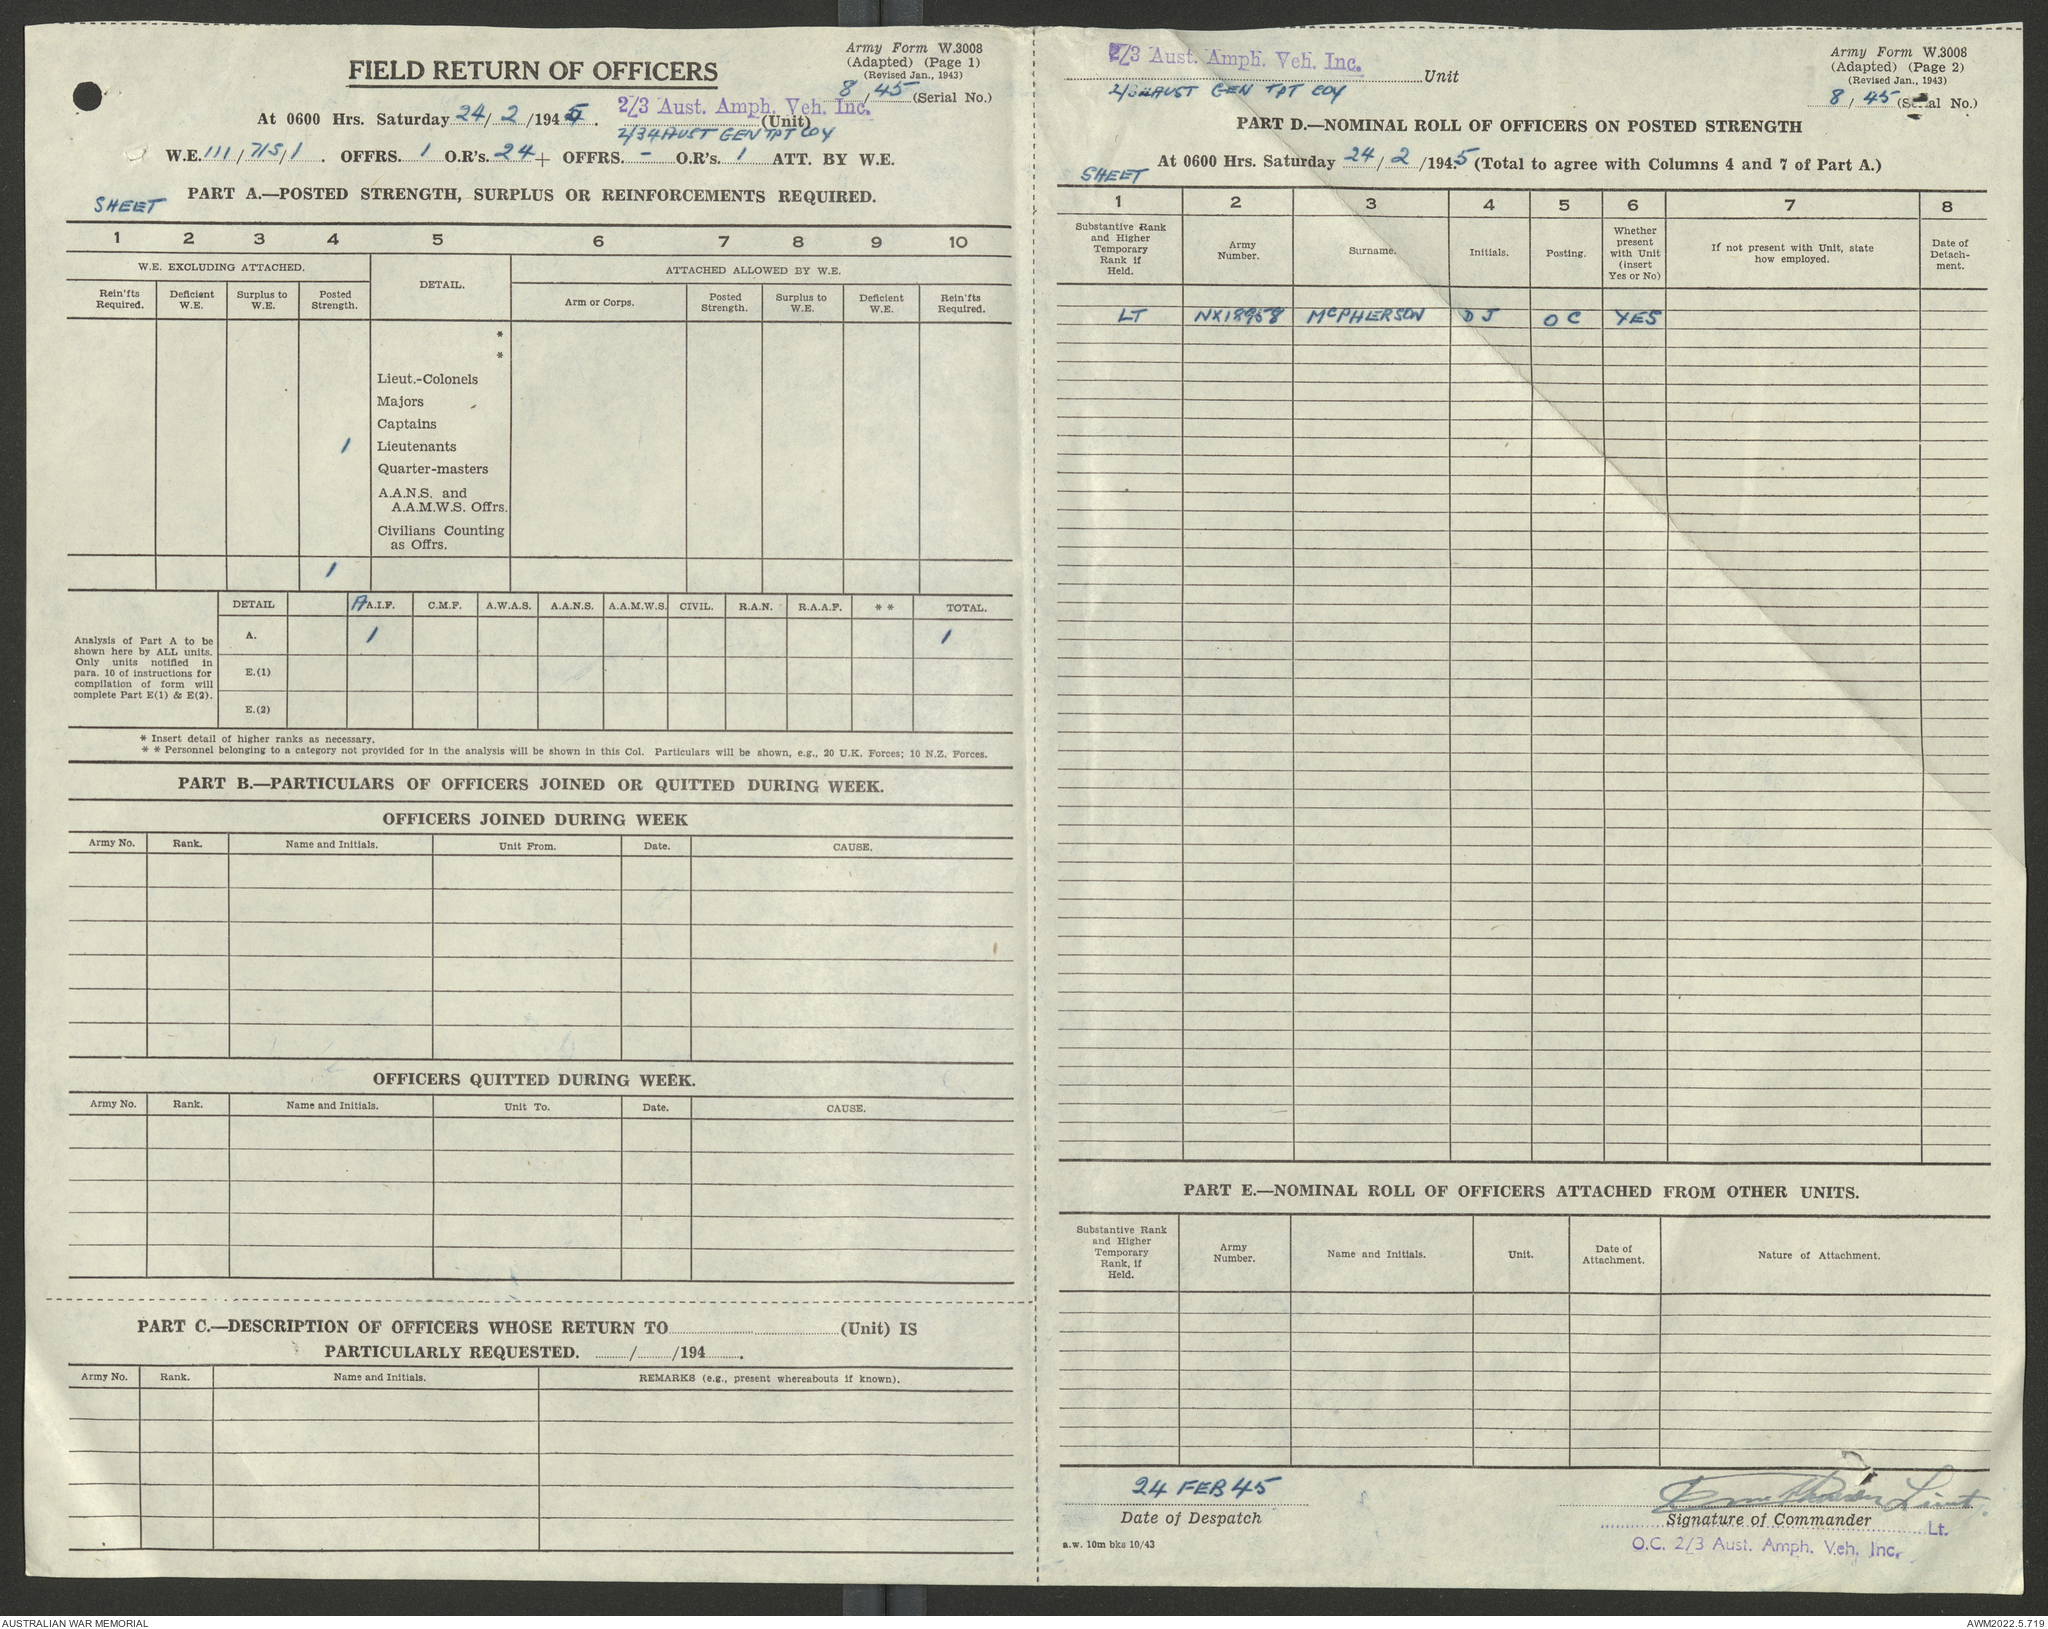 Army Form W.3008
(Adapted) (Page 1)
(Revised Jan., 1943)
8/45 (Serial No.)
FIELD RETURN OF OFFICERS
At 0600 Hrs. Saturday 24/2/1945.
2/3 Aust. Amph. Veh. Inc.
(Unit)
AUST GEN TPT COY
W.E. 111/7/S/1. OFFRS. 1 O.R's. 24 + OFFRS. - O.R's. 1 ATT. BY W.E.
SHEET
PART A.—POSTED STRENGTH, SURPLUS OR REINFORCEMENTS REQUIRED.
1 2 3 4 5 6 7 8 9 10
W.E. EXCLUDING ATTACHED.
DETAIL.
ATTACHED ALLOWED BY W.E.
Rein'fts Required.
Deficient W.E.
Surplus to W.E.
Posted Strength.
Arm or Corps.
Posted Strength.
Surplus to W.E.
Deficient W.E.
Rein'fts Required.
*
*
Lieut.-Colonels
Majors
Captains
1 Lieutenants
Quarter-masters
A.A.N.S. and
A.A.M.W.S. Offrs.
Civilians Counting
as Offrs.
1
DETAIL A.I.F. C.M.F. A.W.A.S. A.A.N.S. A.A.M.W.S. CIVIL. R.A.N. R.A.A.F. * * TOTAL.
A. 1 1
E.(1)
E.(2)
Analysis of Part A to be
shown here by ALL units.
Only units notified in
para. 10 of instructions for
compilation of form will
complete Part E(1) & E(2).
* Insert detail of higher ranks as necessary.
* * Personnel belonging to a category not provided for in the analysis will be shown in this Col. Particulars will be shown, e.g., 20 U.K. Forces; 10 N.Z. Forces.
PART B.—PARTICULARS OF OFFICERS JOINED OR QUITTED DURING WEEK.
OFFICERS JOINED DURING WEEK
Army No. Rank. Name and Initials. Unit From. Date. CAUSE.
OFFICERS QUITTED DURING WEEK.
Army No. Rank. Name and Initials. Unit To. Date. CAUSE.
PART C.—DESCRIPTION OF OFFICERS WHOSE RETURN TO (Unit) IS
PARTICULARLY REQUESTED. / /194 .
Army No. Rank. Name and Initials. REMARKS (e.g., present whereabouts if known).
2/3 Aust. Amph. Veh. Inc.
Unit
AUST GEN TPT COY
Army Form W.3008
(Adapted) (Page 2)
(Revised Jan., 1943)
8/45 (Serial No.)
PART D.—NOMINAL ROLL OF OFFICERS ON POSTED STRENGTH
At 0600 Hrs. Saturday 24/2/1945 (Total to agree with Columns 4 and 7 of Part A.)
SHEET
1 2 3 4 5 6 7 8
Substantive Rank and Higher Temporary Rank if Held.
Army Number.
Surname.
Initials.
Posting.
Whether present with Unit (insert Yes or No)
If not present with Unit, state how employed.
Date of Detach-ment.
LT NX18958 McPHERSON D J O C YES
PART E.—NOMINAL ROLL OF OFFICERS ATTACHED FROM OTHER UNITS.
Substantive Rank and Higher Temporary Rank, if Held.
Army Number.
Name and Initials.
Unit.
Date of Attachment.
Nature of Attachment.
24 FEB 45
Date of Despatch
Lieut.
Signature of Commander
Lt.
O.C. 2/3 Aust. Amph. Veh. Inc.
a.w. 10m bks 10/43
AUSTRALIAN WAR MEMORIAL
AWM2022.5.719